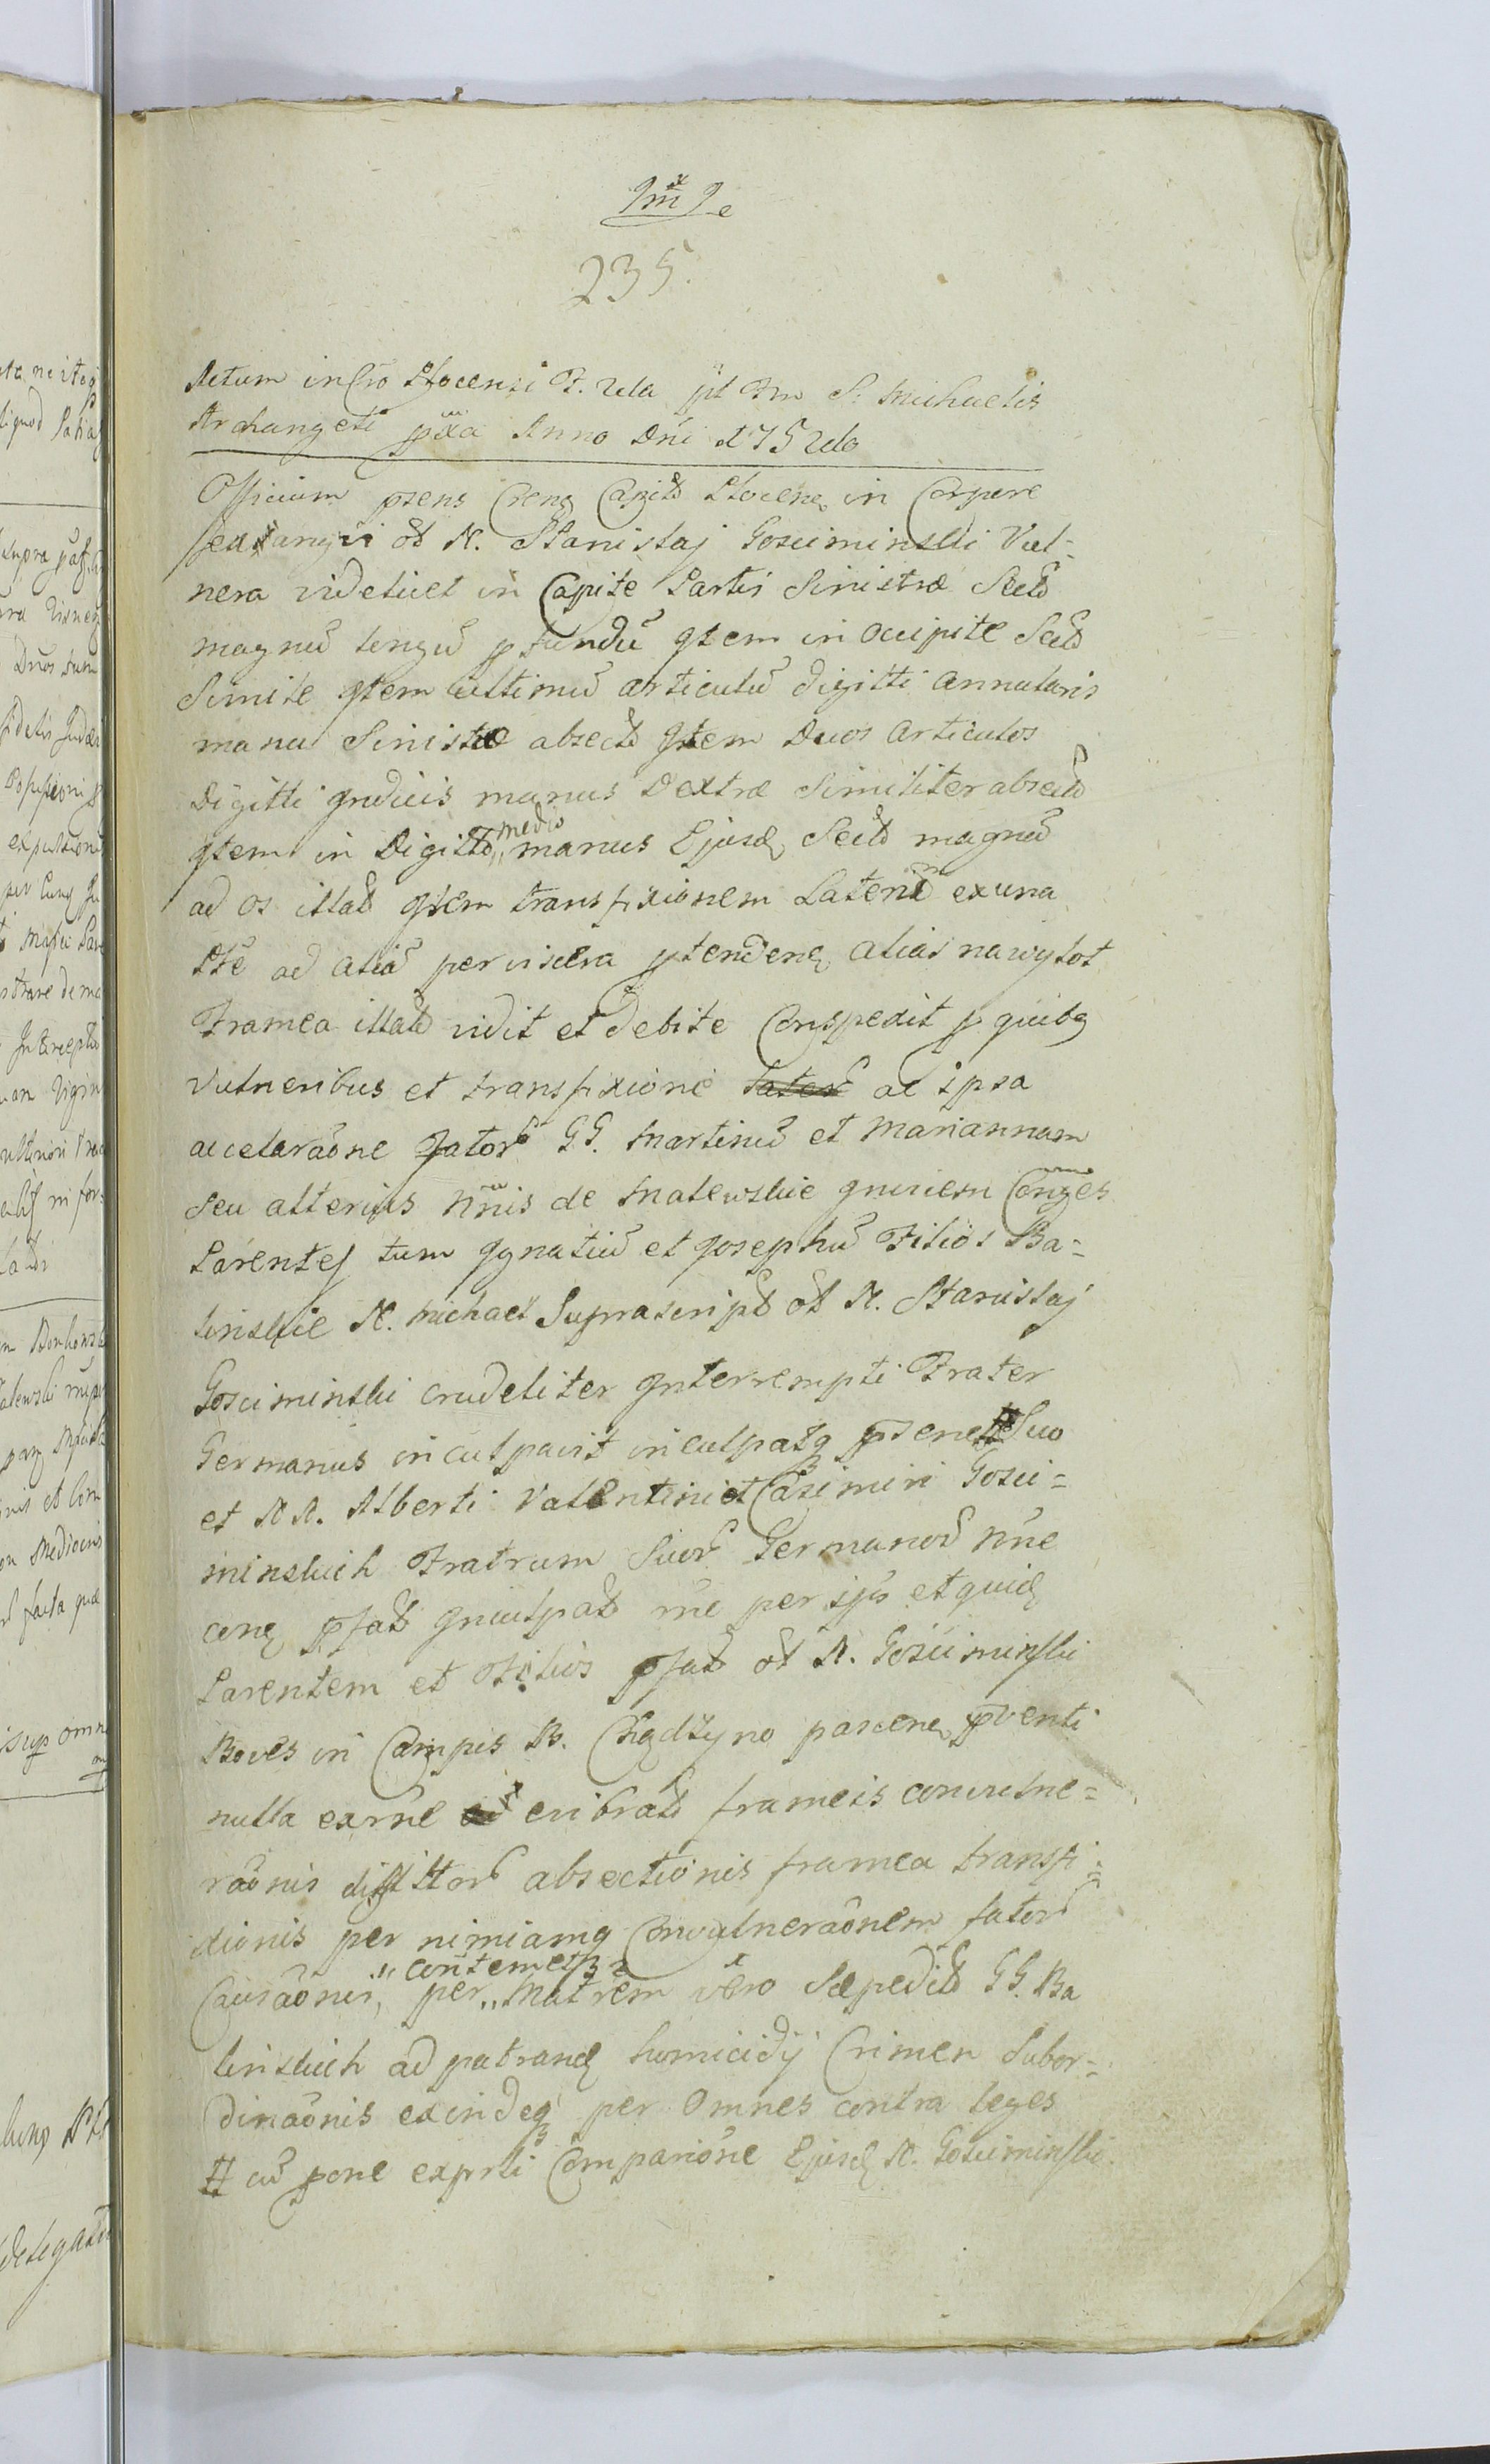 235.
Actum in Cro Plocensi F. 2da pt Fm S. Michaelis
Archangeli pxa Anno Dni 1752do
Officium psens Crens Capit Plocens in Corpore
exangvi ol N. Stanislaj Gosciminski Vul=
nera videlicet in Capite Partis Sinistræ Sect
magnu longu pfundu Item in occipite Sect
Simile Item ultimu articulu digitti annularis
manu Sinistræ absect Item Duos articulos
Digitti Indicis manus Dextræ Similiter absect
Item in Digitto „medio manus Ejusd Sect magnu
ad os illat Item transfixionem Laterum ex una
pte ad alia per viscera ptendens alias nawylot
Framea illat vidit et debite Conspexit p quibq
vulneribus et transfixione ac ipsa
accelaraone fator GG. Martinu et Mariannam
seu alterius nnis de Malewskie gnuiem Conges
Parentes tum Ignatiu et Josephu Filios Ba=
linskie N. Michael Suprascript ol N. Stanislaj
Gosciminski crudeliter Interrempti Frater
Germanus inculpavit inculpatq psens # Suo
et N N. Alberti Valentini et Casimiri Gosci=
minskich Fratrum Suor Germanor nne
cone pfat Inculpat rne per ipos et quid
Parentem et Filios pfat ol N. Gosciminski
Boves in Campis B. Chądzyno pascens pventi
nulla exrne cribrat frameis convulne=
raonis digittor absectionis framea transfi=
xionis per nimiamq Convulneraonem fator
Causaonis, per „contemetq„ Matrem vero Sæpedict GG. Ba
linskich ad patrand homicidij Crimen Subor=
dinaonis exindeq per Omnes contra leges
# cu pone exprti Comparione Ejusd N. Gosciminski